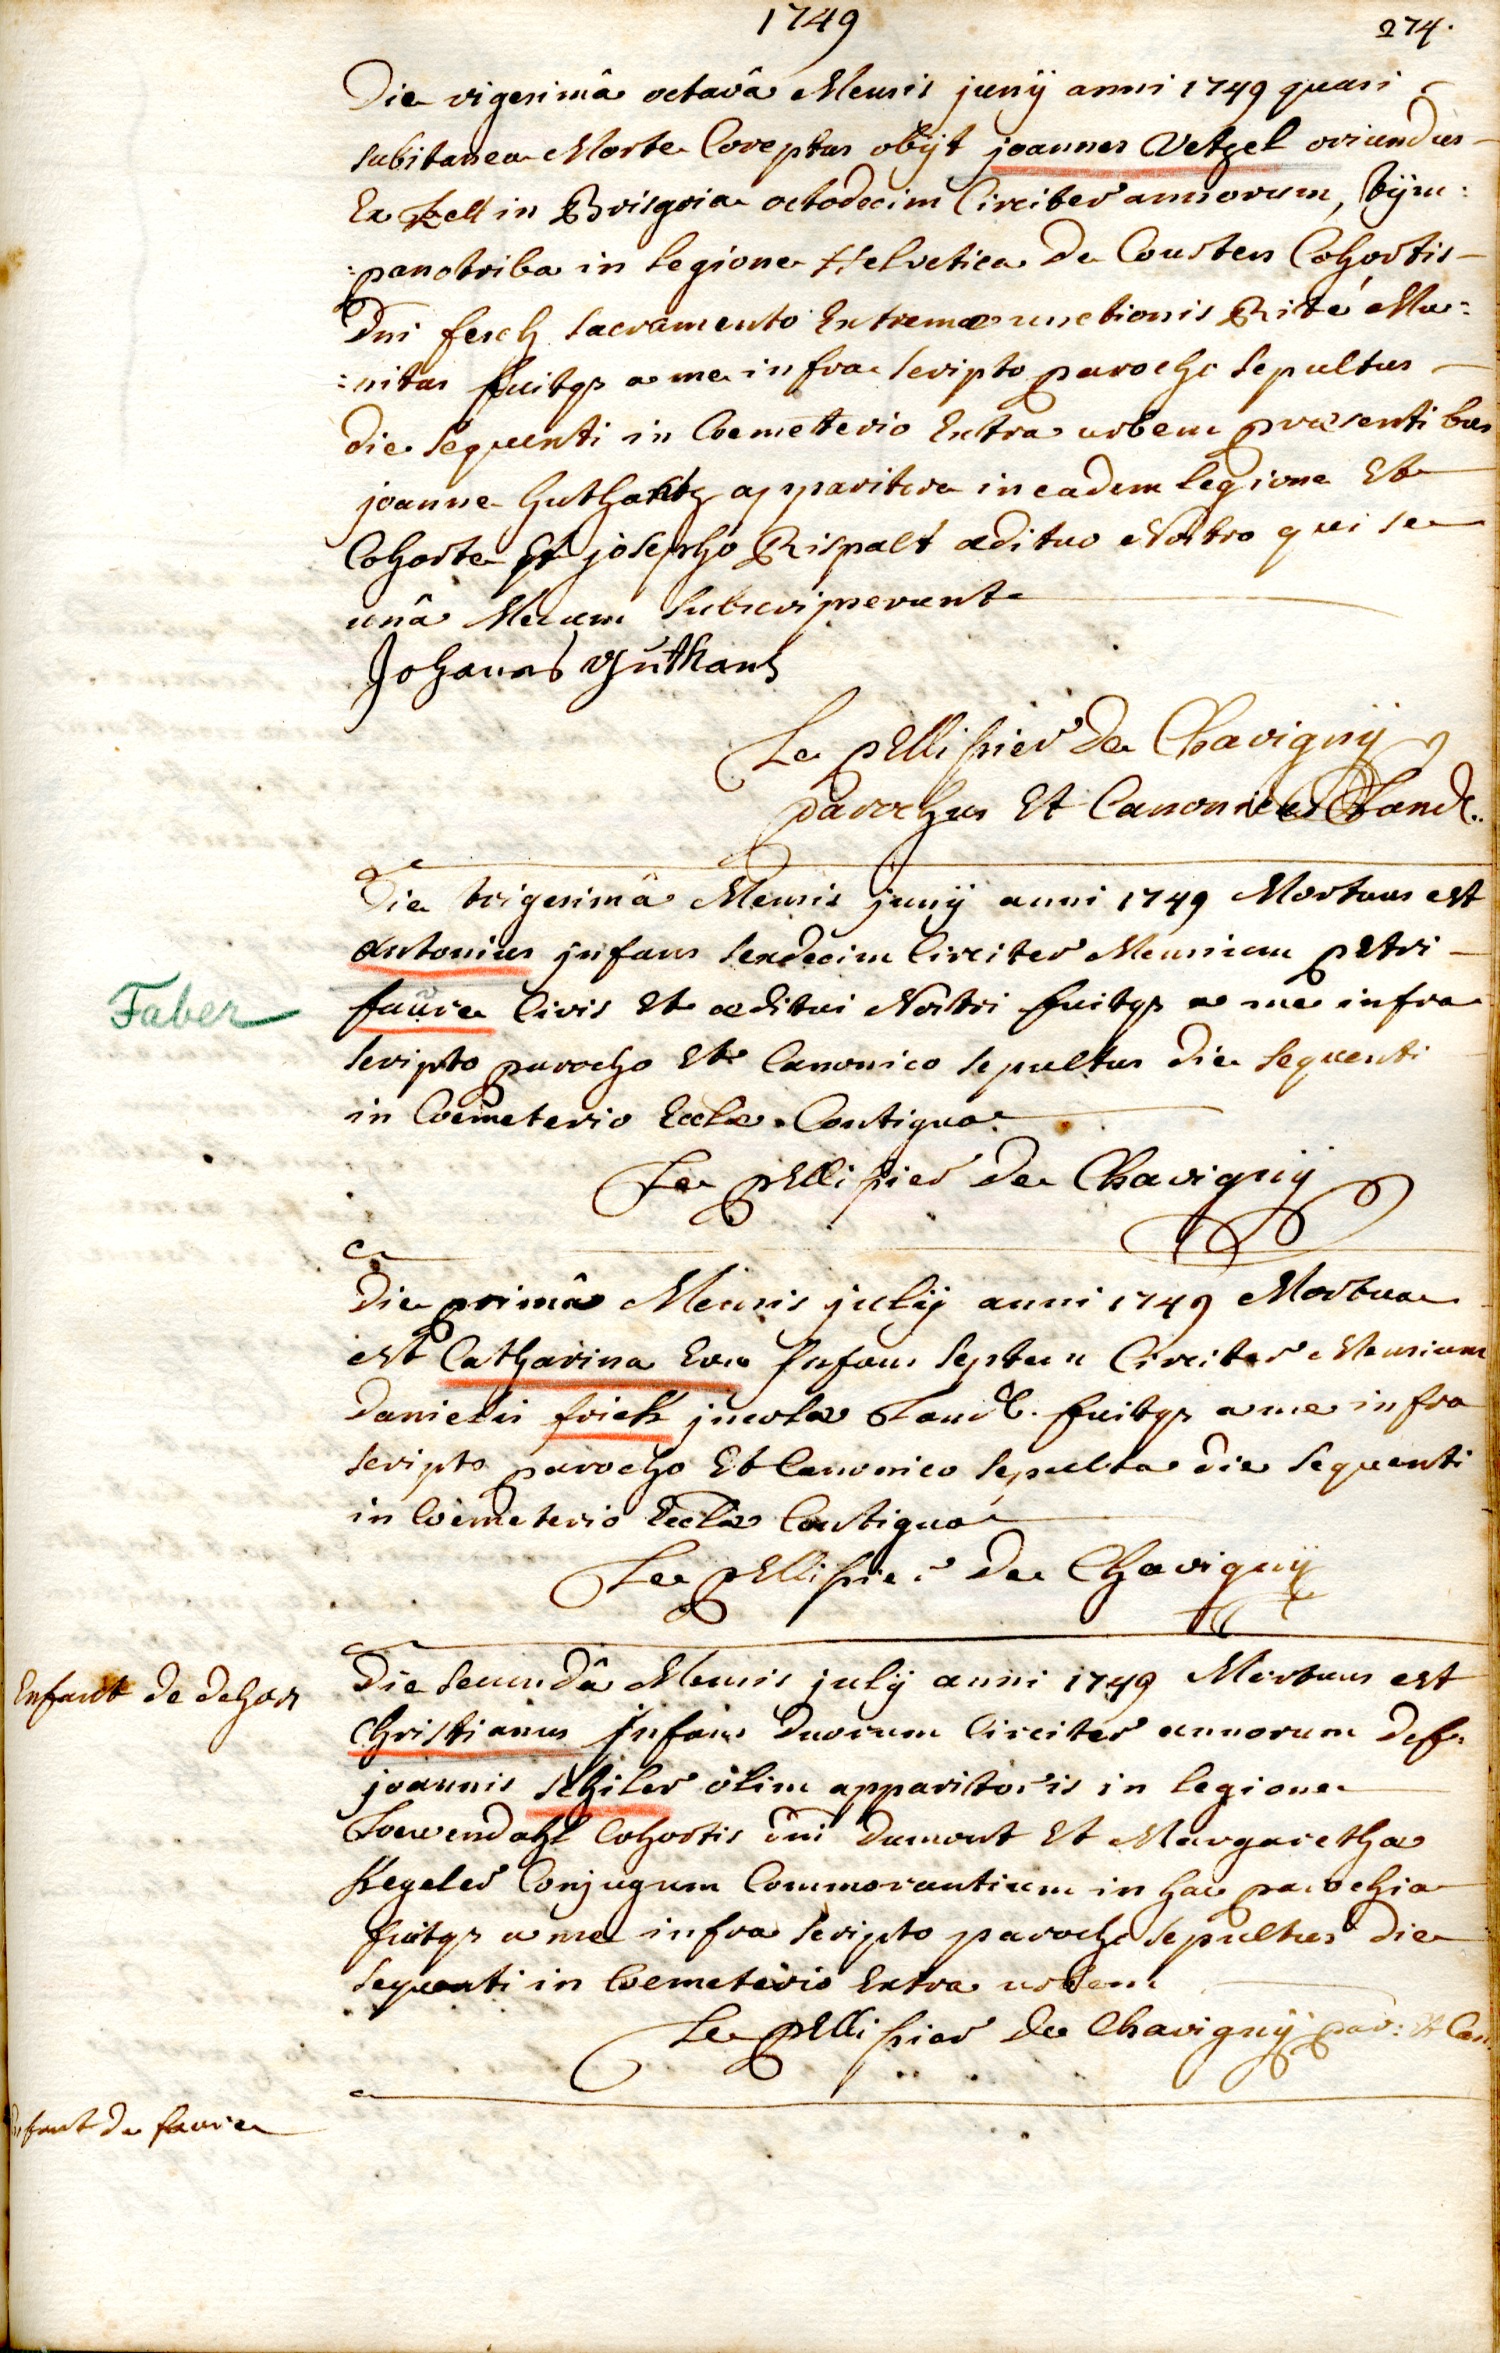 1749
274.
Die vigesimâ octavâ Mensis junÿ anni 1749 quasi
subitanea Morte Coreptus obÿt joannes Vetzel oriundus
Ex Zell in Brisgoia octodecim Circiter annorum, tÿm:
:panotriba in legione Helvetica De Cousten Cohortis
Dni fesch sacramento Extremæ unctionis Rité Mu:
:nitus fuitqs a me infra scripto parocho sepultus
die sequenti in Coemetterio Extra urbem præsentibus
joanne Guthantz apparitore in eadem legione Et
Cohorte Et josepho Rispalt ædituo Nostro qui se
unâ Mecum subscripserunt
Johannes Guthans
Le pEllissier De Chavignÿ
parochus Et Canonicus Land.
Die trigesimâ Mensis junÿ anni 1749 Mortuus est
Antonius jnfans sexdecim Circiter Mensium pEtri
Faber
faure Civis Et æditui Nostri fuitqs a me infra
scripto parocho Et Canonico sepultus die sequenti
in Coemeterio Ecclæ Contiguo
Le pEllissier De Chavignÿ
Die primâ Mensis julÿ anni 1749 Mortua
est Catharina Eva Jnfans septem Circiter Mensium
Danielis frick jncolæ Land. fuitqs a me infra
scripto parocho Et Canonico sepulta die sequenti
in Coemeterio Ecclæ Contiguo
Le pEllissier De Chavignÿ
Enfant de dehors
Die secundâ Mensis julÿ anni 1749 Mortuus est
Christianus Jnfans duorum Circiter annorum def.
joannis schiler olim apparitoris in legione
Loewendahl Cohortis dni dumont Et Margarethæ
Kegeler Conjugum Commorantium in hac parochia
fuitqs a me infra scripto parocho sepultus die
sequenti in Coemeterio Extra urbem
Le pEllissier De Chavignÿ par: Et Can.
Enfant de faure